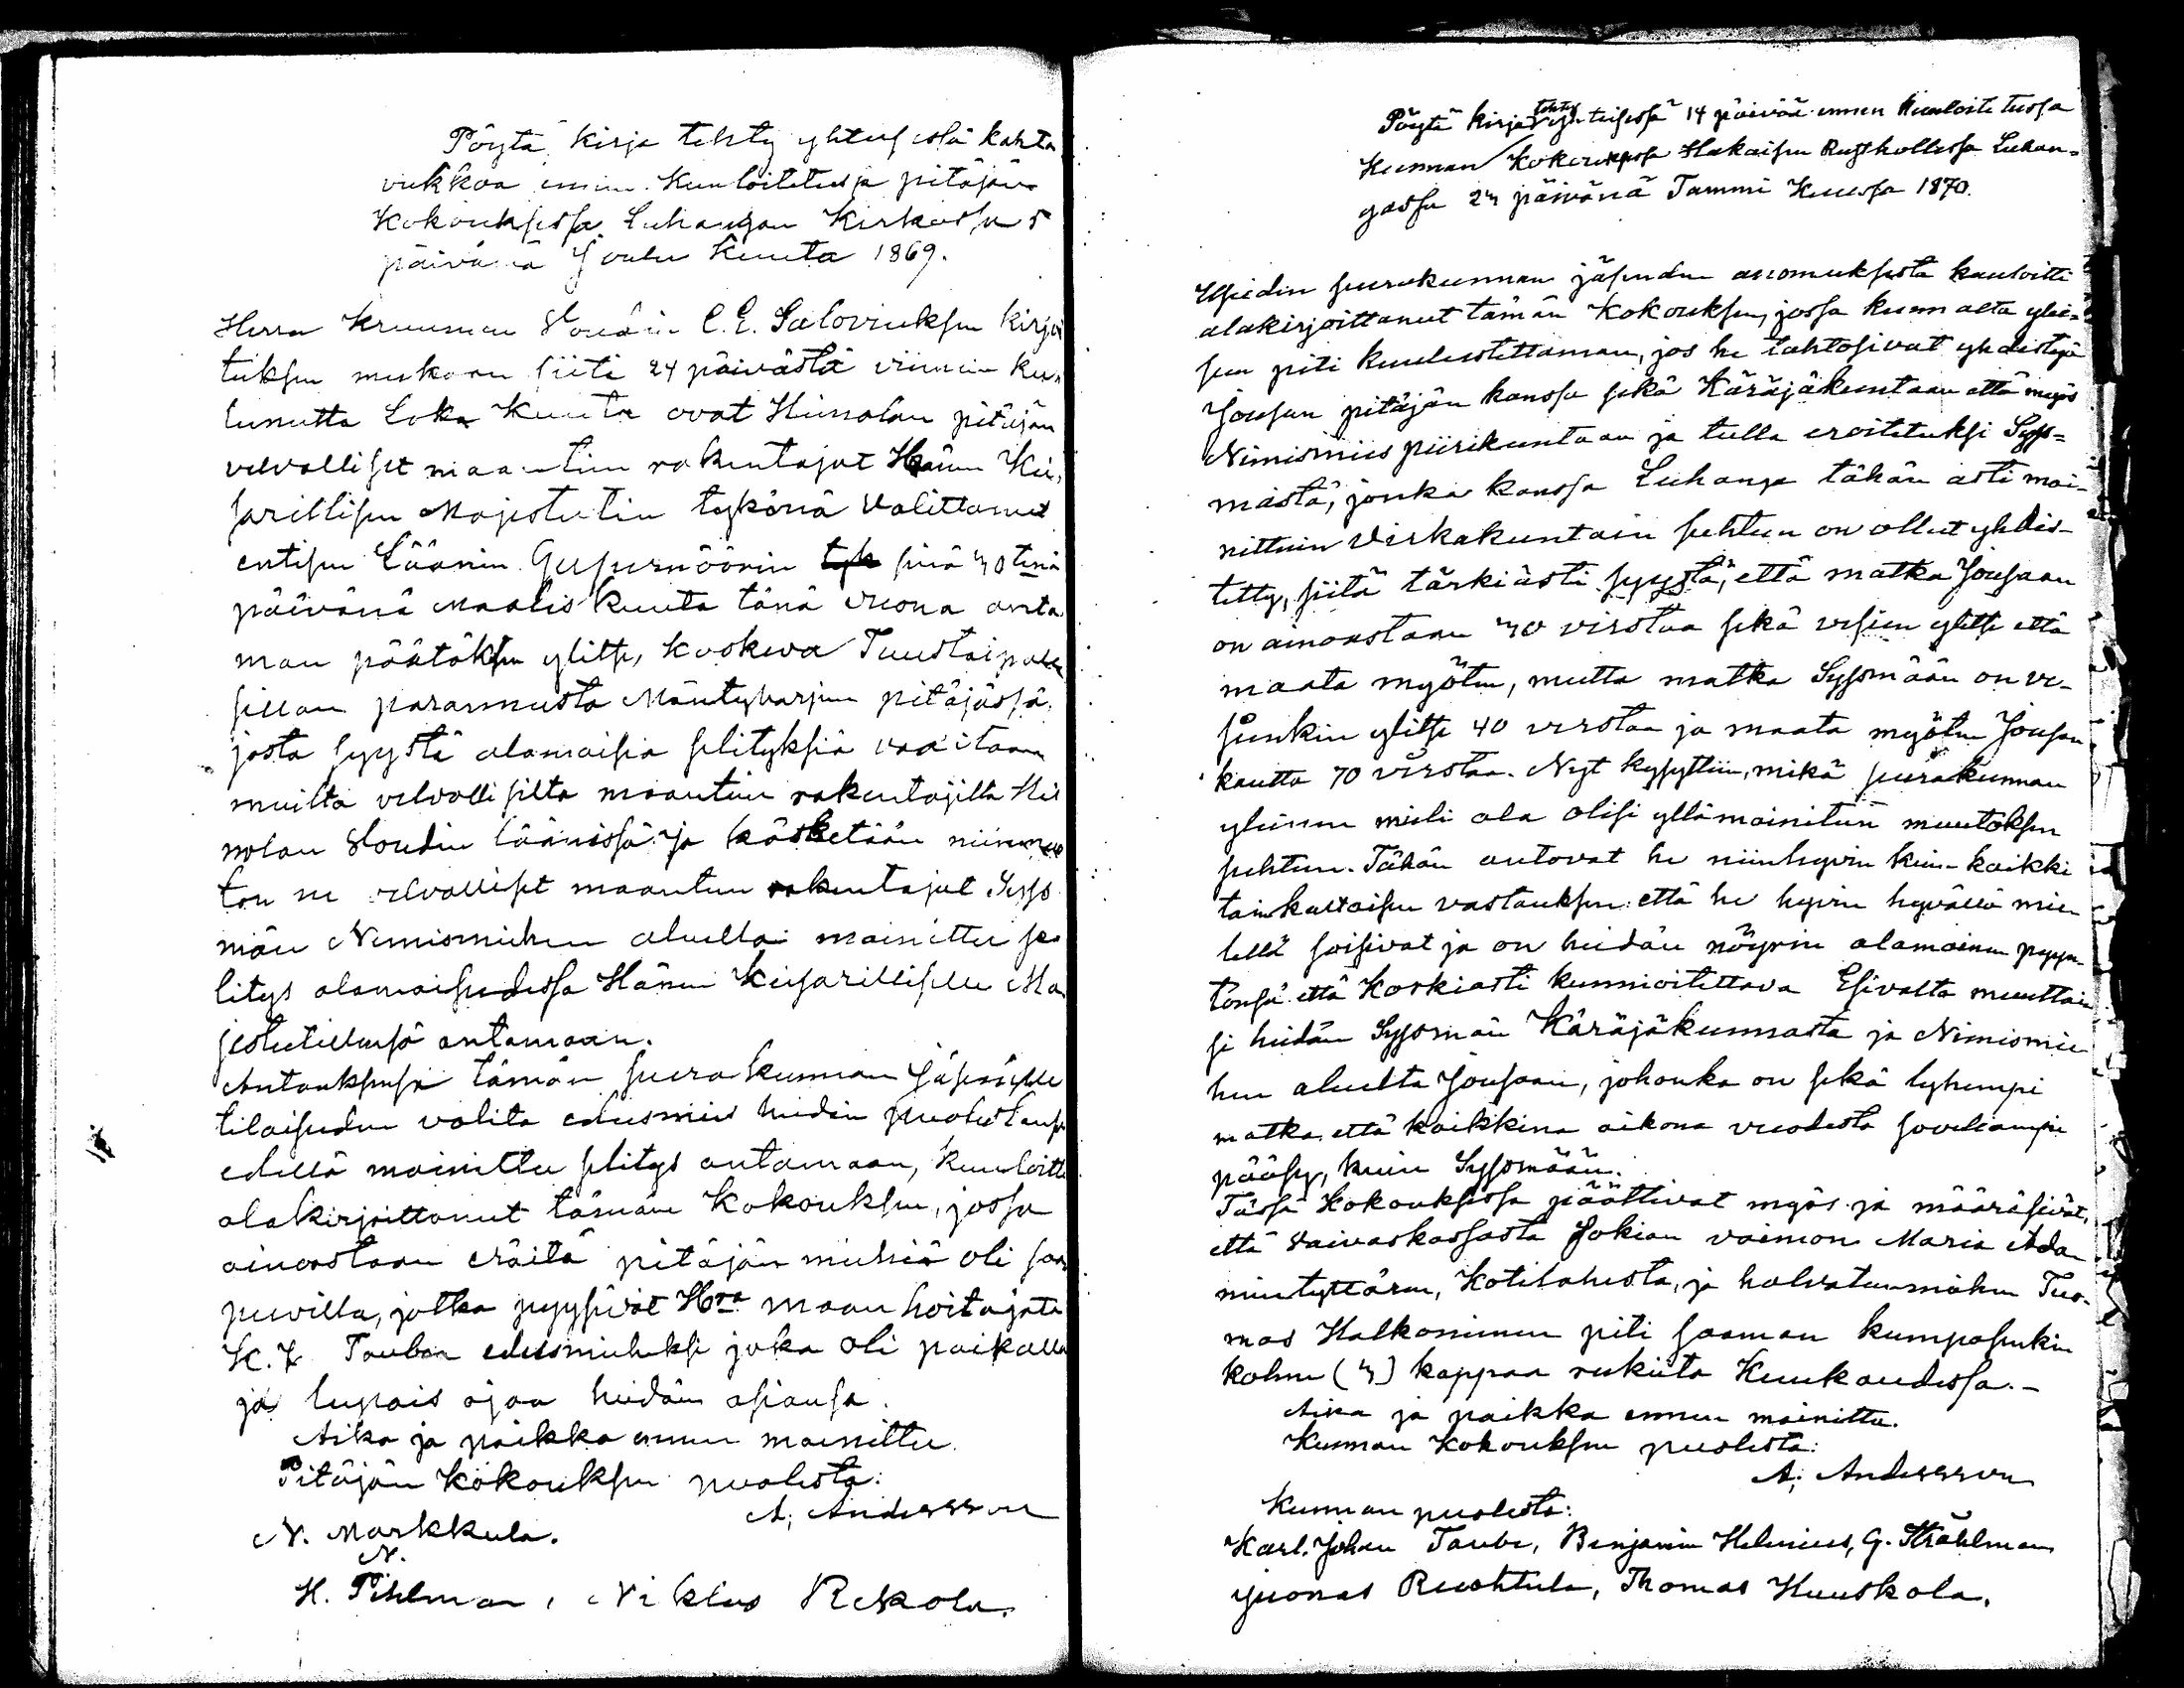 Pöytä kirja tehty yhteisessä kahta
viikkoa ennen Kuuloitetussa pitäjän
Kokouksessa Luhangan Kirkossa 5
päivänä Joulu Kuuta 1869.
Herra Kruunun Voudin C. E. Saloviuksen kirjoi
tuksen mukaan siitä 24 päivästä viimein ku-
lunutta Loka Kuuta ovat Heinolan pitäjän
velvolliset maantien rakentajat Hänen Kei-
sarillisen Majestetin tykönä valittanut
entisen Läänin Gupernöörin sinä 30 tenä
päivänä Maalis Kuuta tänä vuona anta
man päätöksen ylitse, koskeva Tuustaipalen
sillan parannusta Mäntyharjun pitäjässä,
josta syystä alamaisia selityksiä vaaditaan
muilta velvollisilta maantien rakentajilta Hei
nolan Voudin läänissä ja käsketään niinmuo
ton ne velvolliset maantien rakentajat Syss
män Nimismiehen aluella mainittu se
litys alamaisudessa Hänen Keisarilliselle Ma
jestetillensä antamaan.
Antauksensa tämän seurakunnan Jäsenille
tilaisuden valita edusmies heidän puolestansa
edellä mainittu selitys antamaan, kuuloitti
alakirjoittanut tämän Kokouksen, jossa
ainoastaan eräitä pitäjän miehiä oli saa
puvilla, jotka pyysivät Hra maan hoitajata
K. J. Tauben edusmieheksi joka oli paikalla
ja lupais ajaa heidän asiansa.
Aika ja paikka ennen mainittu.
Pitäjän Kokouksen puolesta:
A. Andersson
N. Markkula.
N.
H. Pihlman, Niklas Rekola.
Pöytä kirja tehty yhteisessä 14 päivää ennen Kuuloitetussa
Kunnan Kokouksessa Hakaisen Rusthollissa Luhan-
gassa 23 päivänä Tammi Kuussa 1870.
Useiden seurakunnan jäsenden anomuksesta kuuloitti
alakirjoittanut tämän Kokouksen, jossa kunnalta ylei-
sen piti kuulustettaman, jos he tahtosivat yhdistyä
Joutsan pitäjän kanssa sekä Käräjäkuntaan että myös
Nimismies piirikuntaan ja tulla eroitetuksi Syss-
mästä, jonka kanssa Luhanga tähän asti mai-
nittuin Virkakuntain suhteen on ollut yhdis-
tetty, siitä tärkiästi syystä, että matka Joutsaan
on ainoastaan 30 virstaa sekä vesien ylitse että
maata myöten, mutta matka Syssmään on ve-
sienkin ylitse 40 virstaa ja maata myöten Joutsan
kautta 70 virstaa. Nyt kysyttiin, mikä seurakunnan
yleinen mieli ala olisi yllämainitun muutoksen
suhteen. Tähän antovat he niinhyvin kuin kaikki
tainkaltaisen vastauksen: että he hyvin hyvällä mie
lellä soisivat ja on heidän nöyrin alamainen pyyn-
tönsä että Korkiasti kunnioitettava Esivalta muuttai
si heidän Syssmän Käräjäkunnasta ja Nimismie
hen aluelta Joutsaan, johonka on sekä lyhempi
matka että kaikkina aikona vuodesta soveliampi
pääsy, kuin Syssmään.
Tässä Kokouksessa päättivat myös ja määräsivät,
että Vaivaskassasta Jokian vaimon Maria Ada
mintyttären, Kotilahesta, ja halvatunmiehen Tuo-
mas Halkonimen piti saaman kumpasenkin
kolme (3) kappaa rukiita Kuukaudessa.-
Aika ja paikka ennen mainittu.
Kunnan Kokouksen puolesta:
A. Andersson
Kunnan puolesta:
Karl Johan Taube, Benjamin Helenius, G. Ståhlman
Juonas Ruohtula, Thomas Huuskola.